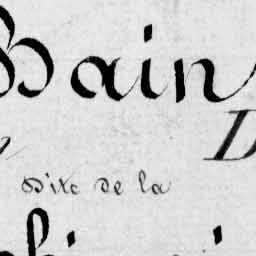 Bain
D
Dite de la